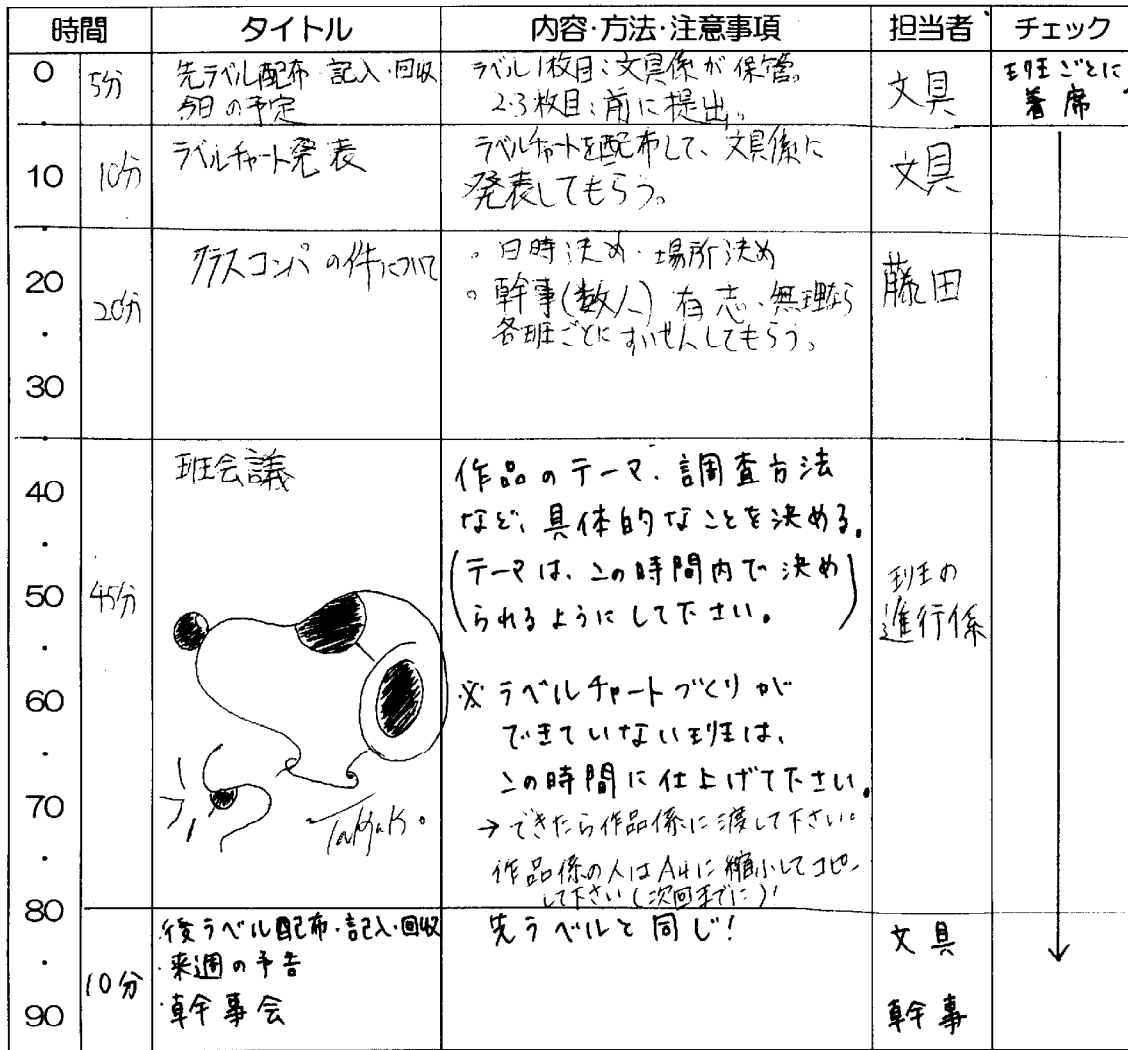 時間 タイトル 内容・方法・注意事項 担当者 チェック
0
・
10
・
20
・
30
・
40
・
50
・
60
・
70
・
80
・
90
5分
先ラベル配布・記入・回収
今日の予定
ラベル1枚目:文具係が保管。
2・3枚目:前に提出。
文具
班ごとに
着席
10分
ラベルチャート発表
ラベルチャートを配布して、文具係に
発表してもらう。
文具
20分
クラスコンパの件について
。日時決め・場所決め
。幹事(数人)有志・無理なら
各班ごとにすいせんしてもらう。
藤田
45分
班会議
作品のテーマ、調査方法
など、具体的なことを決める。
(テーマは、この時間内で決め
られるようにして下さい。)
※ラベルチャートづくりが
できていない班は、
この時間に仕上げて下さい。
→できたら作品係に渡して下さい。
作品係の人はA4に縮小してコピー
して下さい(次回までに)!
班の
進行係
10分
・後ラベル配布・記入・回収
・来週の予告
・幹事会
先ラベルと同じ!
文具
幹事